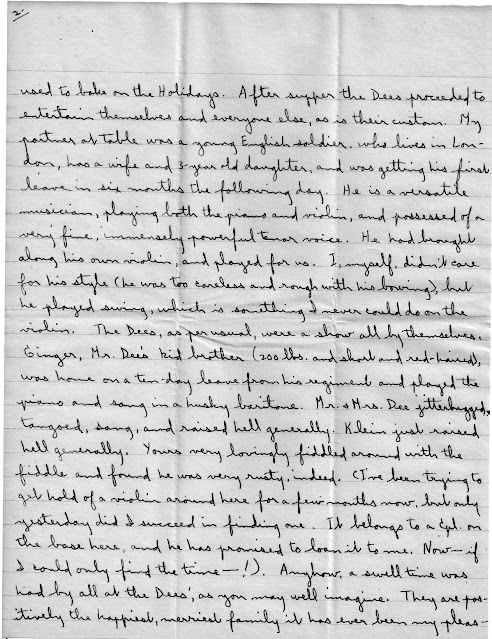 2.
used to bake on the Holidays. After supper the Dees proceeded to
entertain themselves and everyone else, as is their custom. My
partner at table was a young English soldier, who lives in Lon-
don, has a wife and 3-year old daughter, and was getting his first
leave in six months the following day. He is a versatile
musician, playing both the piano and violin, and possessed of a
very fine, immensely powerful tenor voice. He had brought
along his own violin, and played for us. I, myself, didn't care
for his style (he was too careless and rough with his bowing), but
he played swing, which is something I never could do on the
violin. The Dees, as per usual, were a show all by themselves.
Ginger, Mr. Dee's kid brother (200 lbs. and short and red-haired),
was home on a ten-day leave from his regiment and played the
piano and sang in a husky baritone. Mr. & Mrs. Dee jitterbugged,
tangoed, sang, and raised hell generally. Klein just raised
hell generally. Yours very lovingly fiddled around with the
fiddle and found he was very rusty, indeed. (I've been trying to
get hold of a violin around here for a few months now, but only
yesterday did I succeed in finding one. It belongs to a Cpl. on
the base here, and he has promised to loan it to me. Now — if
I could only find the time —!). Anyhow, a swell time was
had by all at the Dees', as you may well imagine. They are pos-
itively the happiest, merriest family it has ever been my pleas-